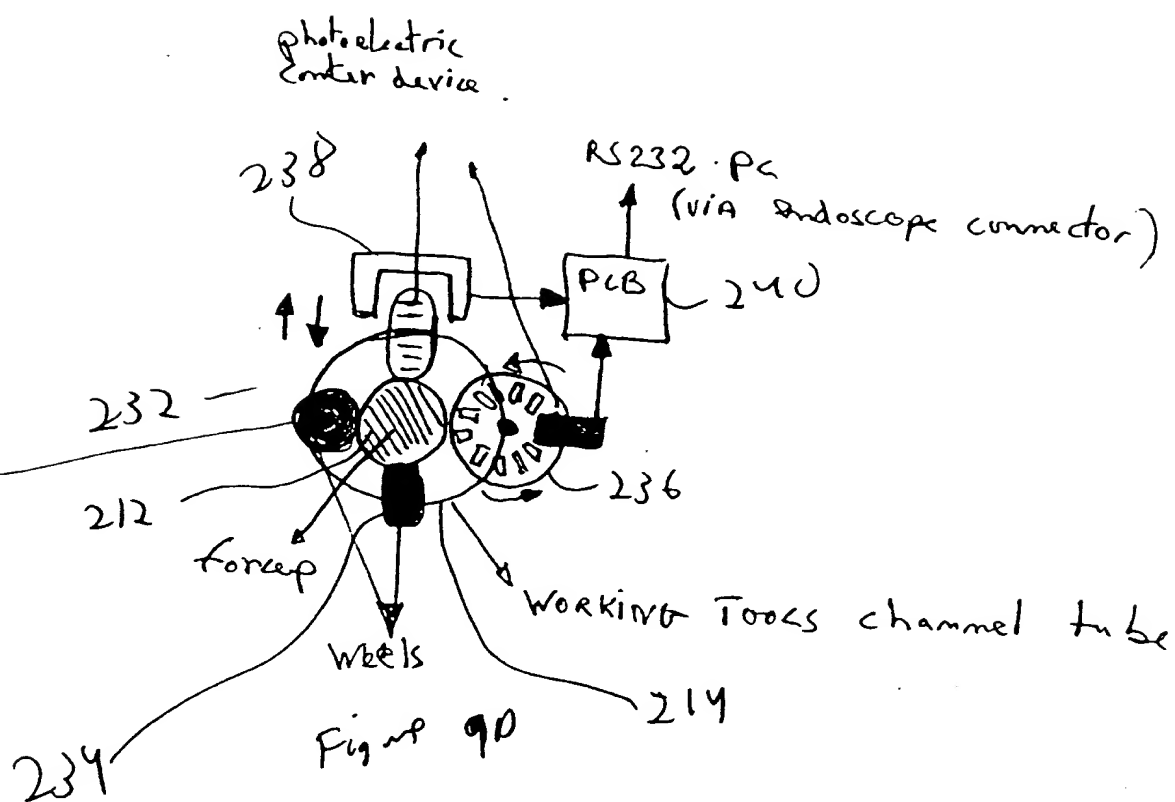 photoelectric
conter device.
238
RS232.PC
(via Endoscope connector)
PCB
240
232
212
236
forcep
WORKING TOOLS channel tube
Weels
214
Figure 9D
234